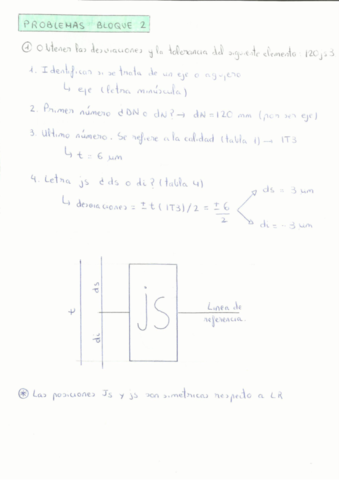 PROBLEMAS BLOQUE 2
① Obtener las desviaciones y la tolerancia del siguiente elemento: 120js3
1. Identificar si se trata de un eje o agujero
↳ eje (letra minúscula)
2. Primer número ¿DN o dN? → dN = 120 mm (por ser eje)
3. Último número. Se refiere a la calidad (tabla 1) → IT3
↳ t = 6 um
4. Letra js ¿ds o di? (tabla 4)
↳ desviaciones = ± t(IT3)/2 = ± 6/2
ds = 3 um
di = -3 um
t
ds
di
js
Linea de
referencia
* Las posiciones Js y js son simetricas respecto a LR